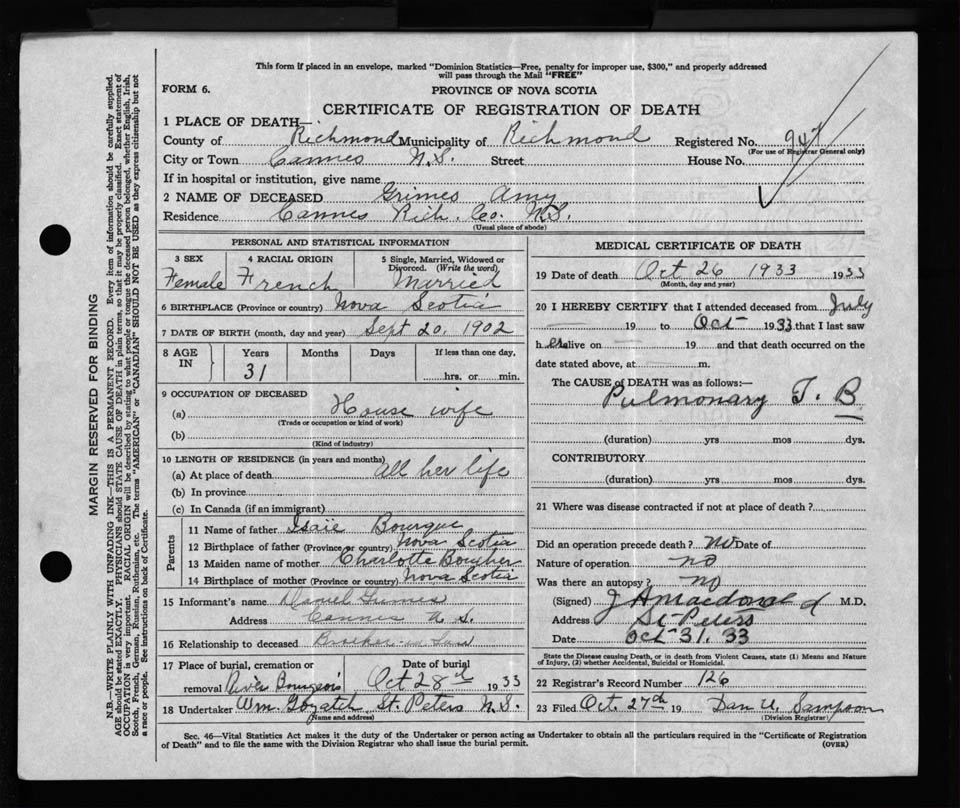 This form if placed in an envelope, marked "Dominion Statistics—Free, penalty for improper use, $300," and properly addressed
will pass through the Mail "FREE"
FORM 6.
PROVINCE OF NOVA SCOTIA
CERTIFICATE OF REGISTRATION OF DEATH
1 PLACE OF DEATH—
County of Richmond Municipality of Richmond Registered No. 947
(For use of Registrar General only)
City or Town Cannes N.S. Street House No.
If in hospital or institution, give name
2 NAME OF DECEASED Grimes Amy
Residence Cannes Rich. Co. N.S.
(Usual place of abode)
PERSONAL AND STATISTICAL INFORMATION
3 SEX
Female
4 RACIAL ORIGIN
French
5 Single, Married, Widowed or
Divorced. (Write the word)
Married
6 BIRTHPLACE (Province or country) Nova Scotia
7 DATE OF BIRTH (month, day and year) Sept 20, 1902
8 AGE
IN
Years
31
Months
Days
If less than one day,
hrs. or min.
9 OCCUPATION OF DECEASED
(a) House wife
(Trade or occupation or kind of work)
(b)
(Kind of industry)
10 LENGTH OF RESIDENCE (in years and months)
(a) At place of death all her life
(b) In province
(c) In Canada (if an immigrant)
Parents
11 Name of father Isaïe Bourque
12 Birthplace of father (Province or country) Nova Scotia
13 Maiden name of mother Charlotte
14 Birthplace of mother (Province or country) Nova Scotia
15 Informant's name Daniel Grimes
Address Cannes N.S.
16 Relationship to deceased Brother in Law
17 Place of burial, cremation or
removal River Bourgeois
Date of burial
Oct 28th 1933
18 Undertaker Wm. St. Peters N.S.
(Name and address)
MEDICAL CERTIFICATE OF DEATH
19 Date of death Oct 26 1933 1933
(Month, day and year)
20 I HEREBY CERTIFY that I attended deceased from July
— 19 to Oct- 1933 that I last saw
her alive on — 19 and that death occurred on the
date stated above, at m.
The CAUSE of DEATH was as follows:—
Pulmonary T. B
(duration) yrs mos dys.
CONTRIBUTORY
(duration) yrs mos dys.
21 Where was disease contracted if not at place of death?
Did an operation precede death? No Date of
Nature of operation no
Was there an autopsy? no
(Signed) J A Macdonald M.D.
Address St Peters
Date Oct 31. 33
State the Disease causing Death, or in death from Violent Causes, state (1) Means and Nature
of Injury, (2) whether Accidental, Suicidal or Homicidal.
22 Registrar's Record Number 126
23 Filed Oct. 27th 19 Dan U. Sampson
(Division Registrar)
Sec. 46—Vital Statistics Act makes it the duty of the Undertaker or person acting as Undertaker to obtain all the particulars required in the "Certificate of Registration
of Death" and to file the same with the Division Registrar who shall issue the burial permit.
(OVER)
MARGIN RESERVED FOR BINDING
N.B.—WRITE PLAINLY WITH UNFADING INK—THIS IS A PERMANENT RECORD. Every item of information should be carefully supplied.
AGE should be stated EXACTLY. PHYSICIANS should STATE CAUSE OF DEATH in plain terms, so that it may be properly classified. Exact statement of
OCCUPATION is very important. RACIAL ORIGIN will be described by stating to what people or tongue the deceased person belonged, whether English, Irish,
Scotch, French, German, Russian, Ruthenian, etc. The terms "AMERICAN" or "CANADIAN" SHOULD NOT BE USED as they express citizenship but not
a race or people. See instructions on back of Certificate.